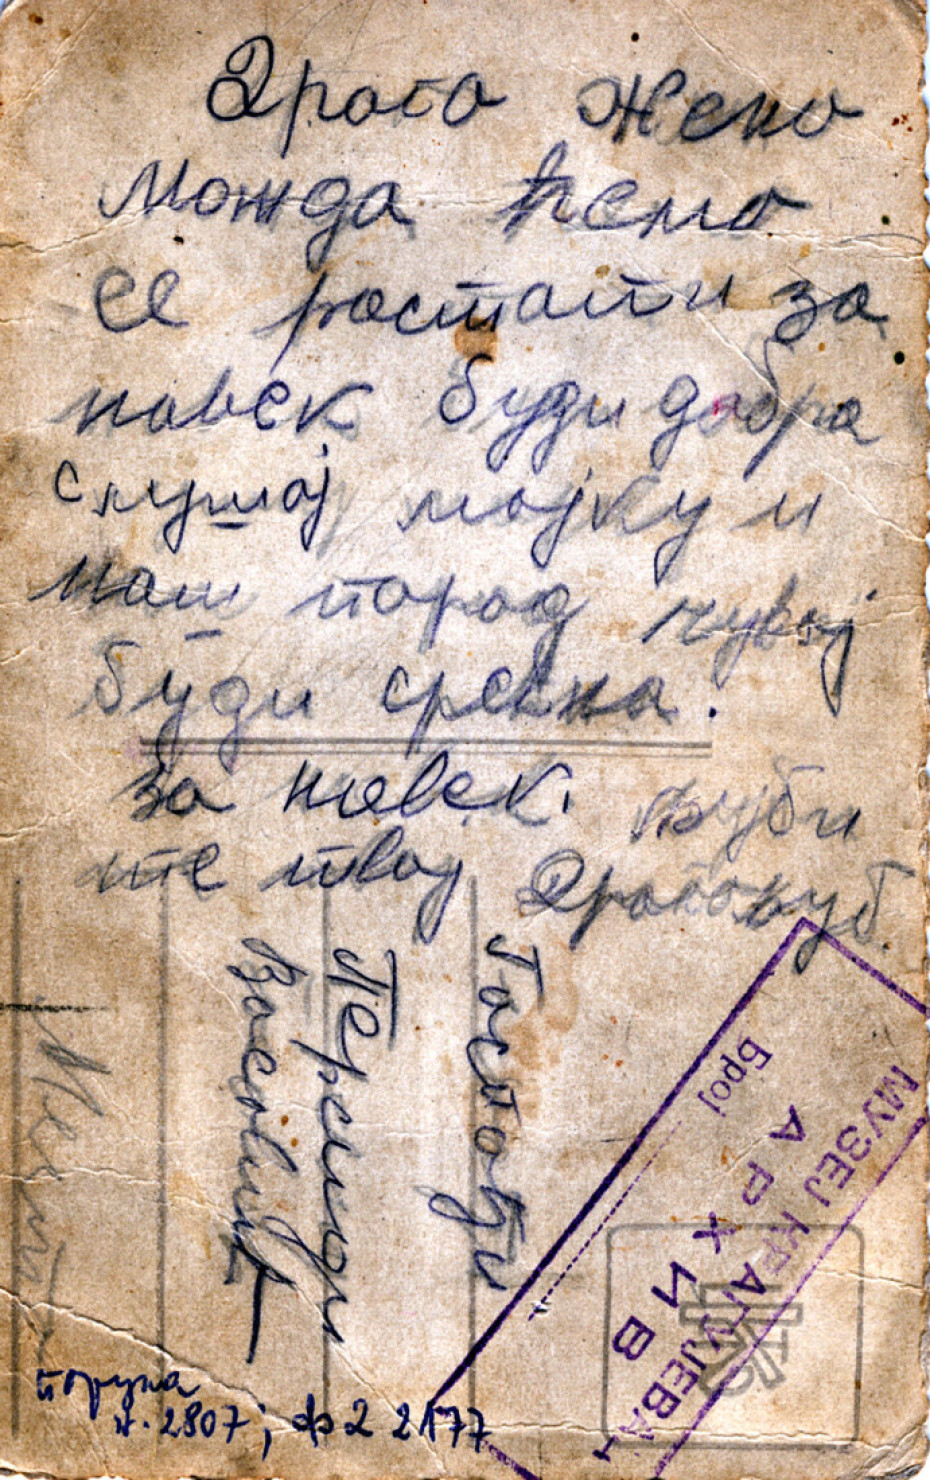 Драга Жено
можда ћемо
се растати за
навек буди добра
слушај мајку и
наш пород чувај
буди срећна.
за навек. љуби
те твој Драгољуб.
Госпођи
Васовић
порука
2807; ф2 2177
МУЗЕЈ КРАГУЈЕВАЦ
АРХИВ
Број